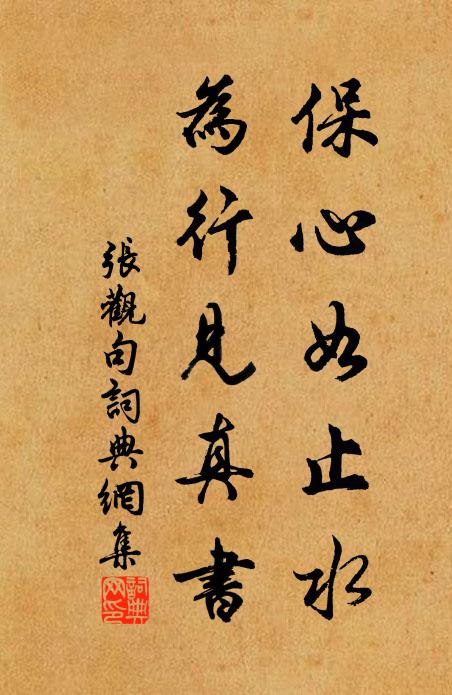 保心如止水
為行見真書
張觀句詞典網集
詞典網印